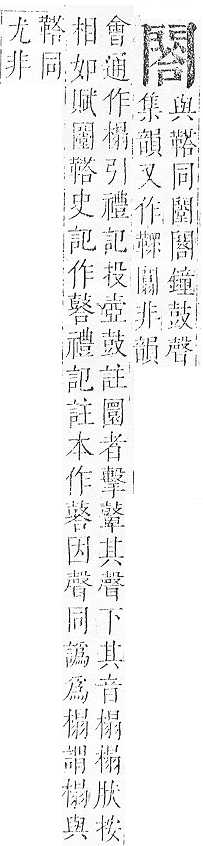 閤
與鞈同闛閤鐘鼓聲
集韻又作闒非韻
會通作榻引禮記投壺鼓註圜者擊鼙其聲下其音榻榻肰按
相如賦闛鞈史記作禮記註本作因聲同譌爲榻謂榻與
鞈同
尤非